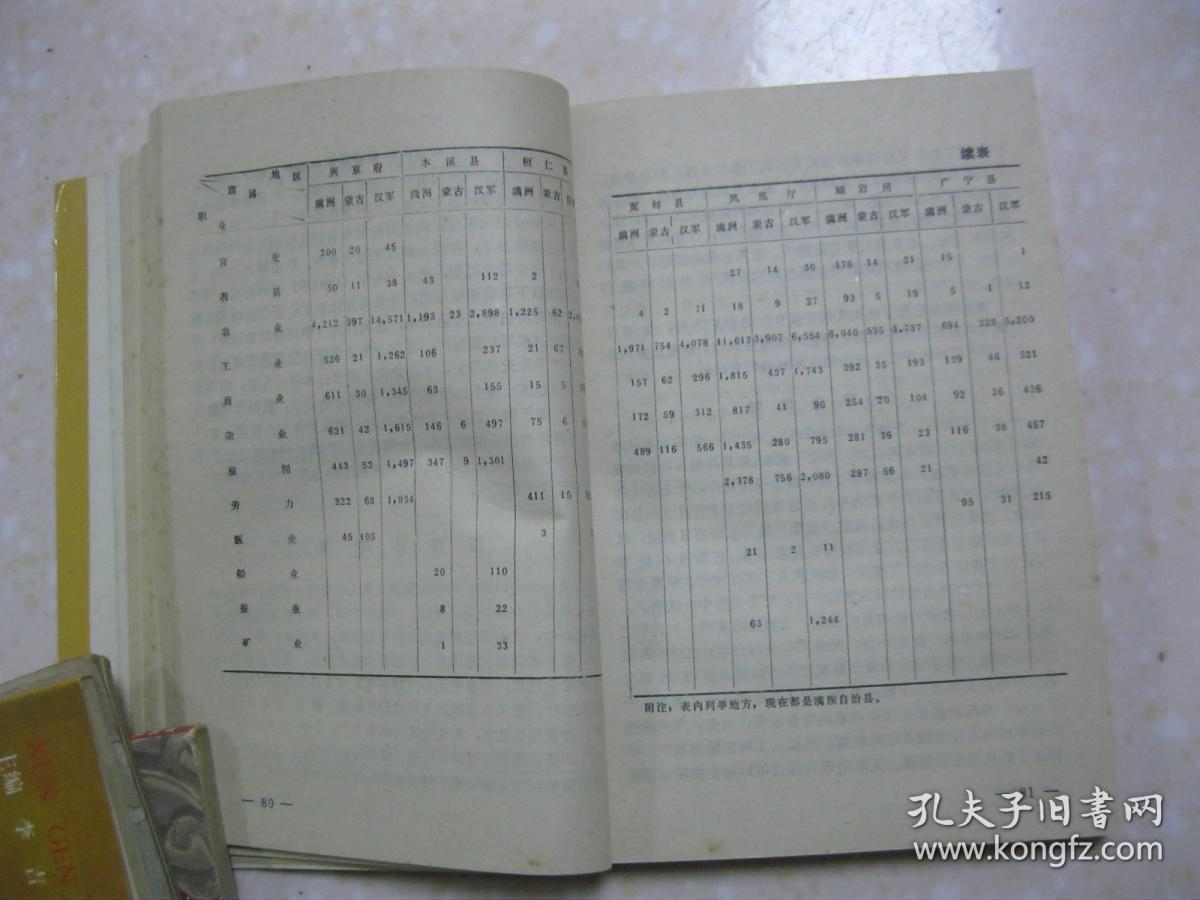 地区
旗国
职业
兴京府 本溪县 桓仁
满洲 蒙古 汉军 满洲 蒙古 汉军 满洲 蒙古
官吏 200 20 45
教员 50 11 38 43 112 2
农业 4,212 397 14,571 1,193 23 2,898 1,225 62
工业 526 21 1,262 106 237 21 67
商业 611 30 1,345 63 155 15 5
杂业 621 42 1,615 146 6 497 75 6
雇佣 443 52 1,497 347 9 1,301
劳力 822 68 1,934 411 15
医业 45 105 3
船业 20 110
业 8 22
矿业 1 33
— 80 —
续表
宽甸县 凤凰厅 岫岩州 广宁县
满洲 蒙古 汉军 满洲 蒙古 汉军 满洲 蒙古 汉军 满洲 蒙古 汉军
27 14 36 176 14 21 15 1
4 2 71 18 9 27 93 5 19 5 1 12
1,971 754 4,078 11,617 3,907 6,554 6,040 535 3,737 694 228 5,200
157 62 296 1,815 457 1,743 392 35 193 139 46 521
172 59 312 817 41 90 254 20 104 92 36 436
489 116 566 1,435 280 795 281 36 23 116 38 457
2,378 756 2,080 297 56 21 42
95 31 215
21 2 11
63 1,244
附注：表内列举地方，现在都是满族自治县。
— 81 —
XUN GEN
主编 李
孔夫子旧书网
www.kongfz.com